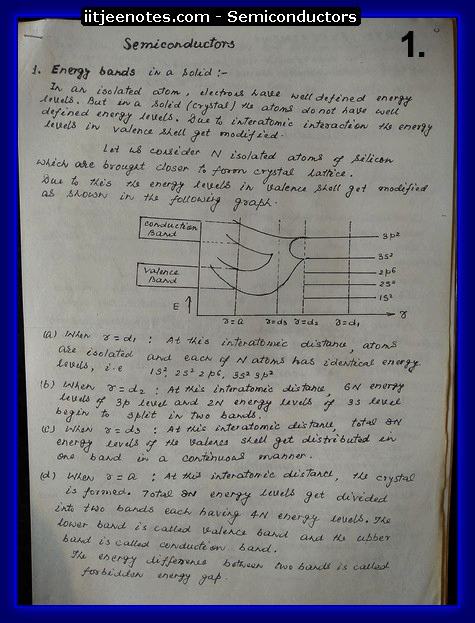 iitjeenotes.com - Semiconductors
Semiconductors
1.
1. Energy bands in a solid :-
In an isolated atom, electrons have well defined energy
levels. But in a solid (crystal) the atoms do not have well
defined energy levels. Due to interatomic interaction the energy
levels in valence shell get modified.
Let us consider N isolated atoms of silicon
which are brought closer to form crystal lattice.
Due to this the energy levels in valence shell get modified
as shown in the following graph.
conduction
Band
valence
Band
E
3p²
3s²
2p6
2s²
1s²
r
r=a
r=d3
r=d2
r=d1
(a) When r=d1 : At this interatomic distance, atoms
are isolated and each of N atoms has identical energy
levels, i.e 1s², 2s² 2p6, 3s² 3p²
(b) When r=d2 : At this interatomic distance, 6N energy
levels of 3p level and 2N energy levels of 3s level
begin to split in two bands.
(c) When r=d3 : At this interatomic distance, total 8N
energy levels of the valence shell get distributed in
one band in a continuous manner.
(d) When r=a : At this interatomic distance, the crystal
is formed. Total 8N energy levels get divided
into two bands each having 4N energy levels. The
lower band is called valence band and the upper
band is called conduction band.
The energy difference between two bands is called
forbidden energy gap.